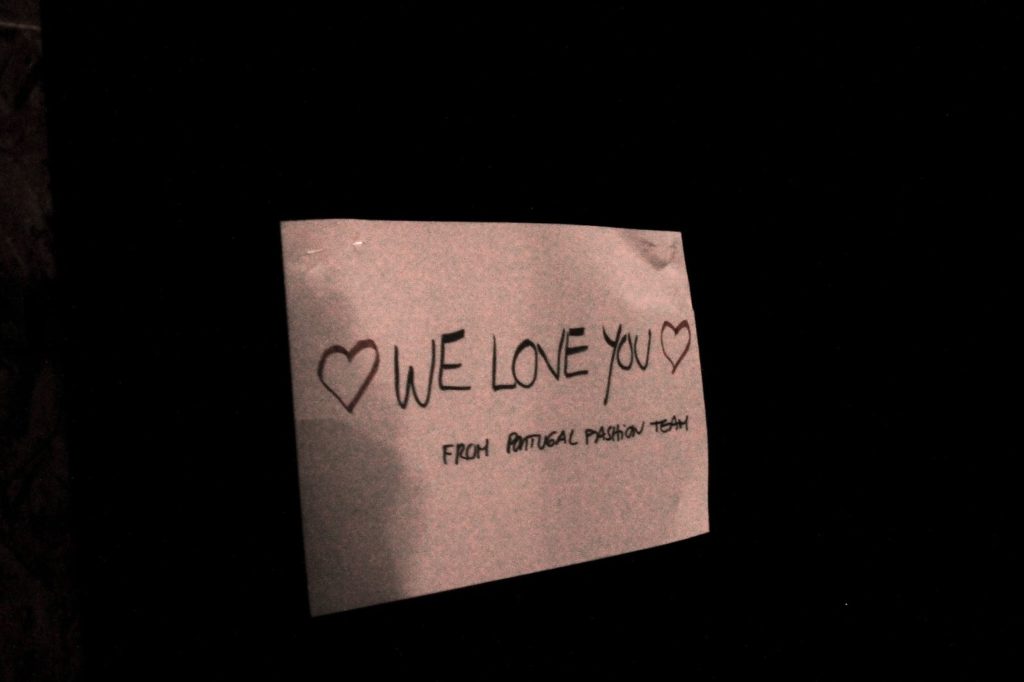 ♡ WE LOVE YOU ♡
FROM PORTUGAL FASHION TEAM